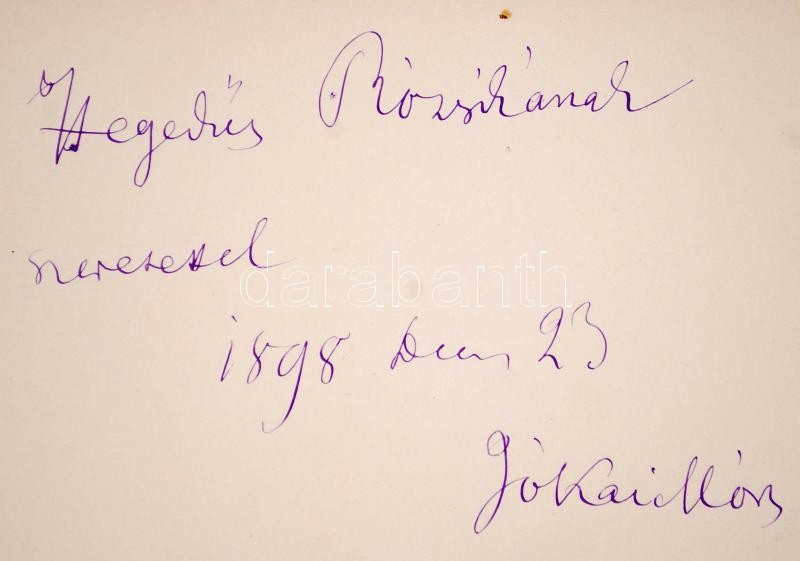 Hegedüs Rózsikának
szeretettel
darabanth
1898 Dec 23
Jókai Mór